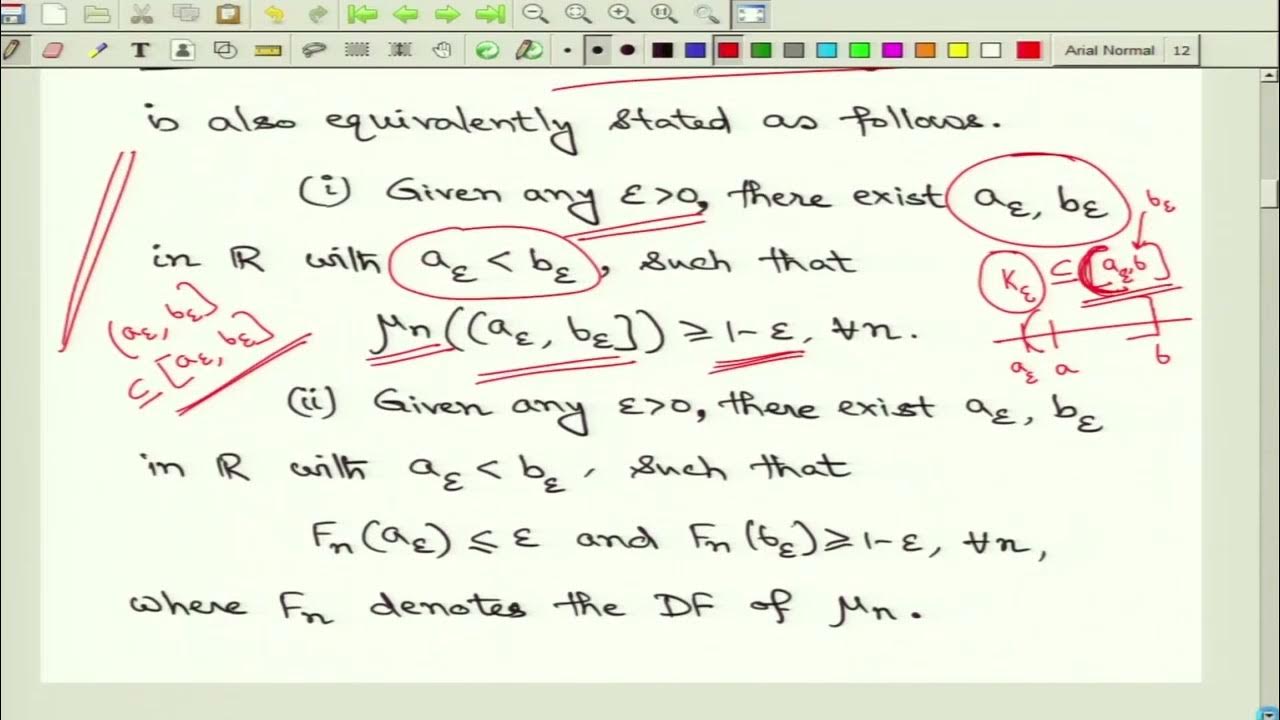 Arial Normal 12
is also equivalently stated as follows.
(i) Given any ε>0, there exist aε, bε
bε
in ℝ with aε < bε, such that
Kε ⊆ (aε, b]
(aε, bε]
⊆ [aε, bε]
μn((aε, bε]) ≥ 1-ε, ∀n.
aε a b
(ii) Given any ε>0, there exist aε, bε
in ℝ with aε < bε, such that
Fn(aε) ≤ ε and Fn(bε) ≥ 1-ε, ∀n,
where Fn denotes the DF of μn.